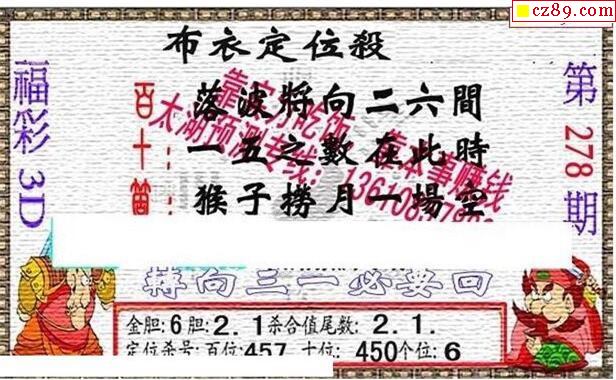 cz89.com
布衣定位殺
福彩3D
第278期
百十個
落波將向二六間
一五之數在此時
猴子撈月一場空
太湖预测专线：
靠本事赚钱
向三一必要回
金胆:6胆:2.1杀合值尾数:2.1.
定位杀号:百位:457 十位:450个位:6